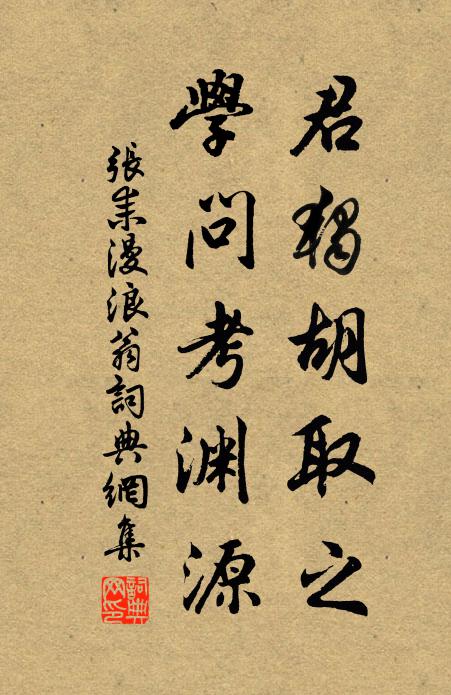 君獨胡取之
學問考渊源
張耒漫浪翁詞典網集
詞典网印